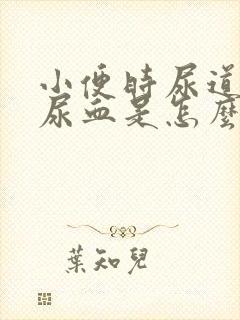 小便時尿道
尿血是怎麽
葉知兒